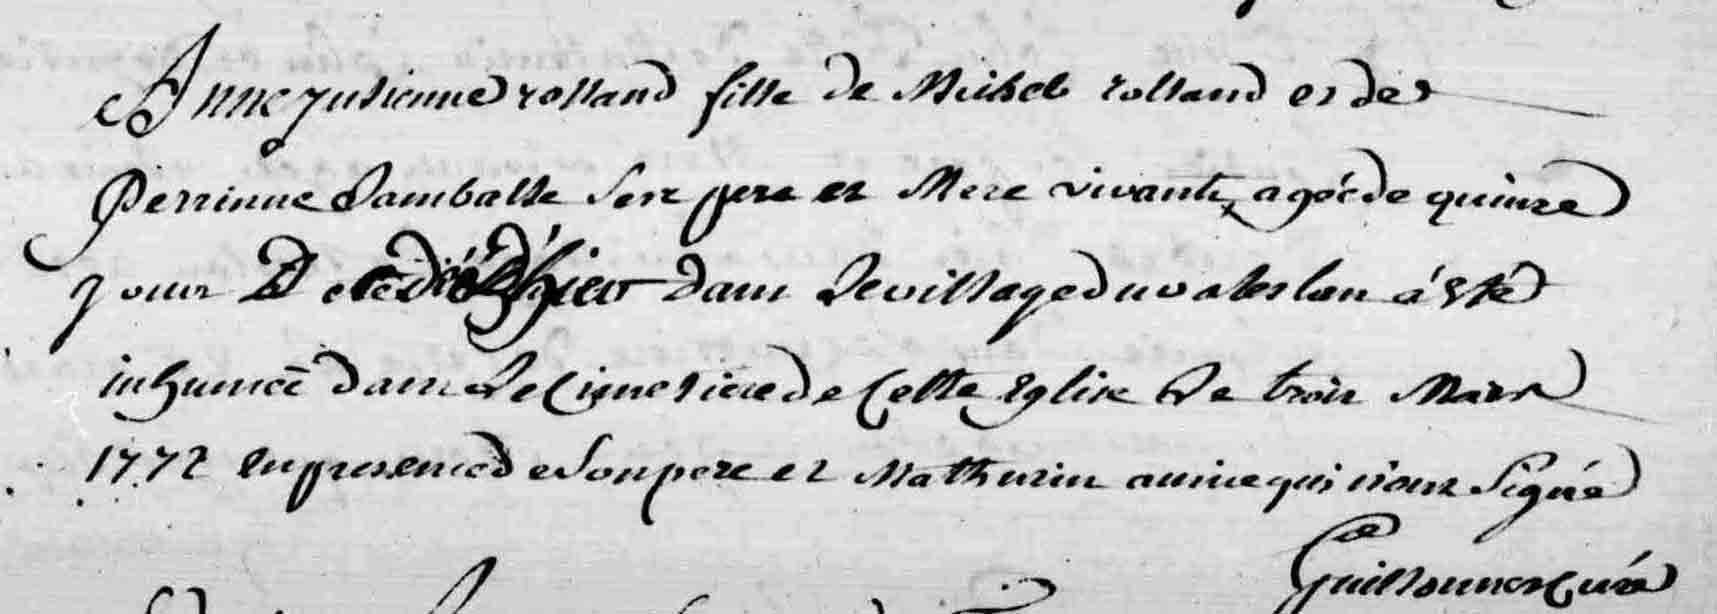 Anne julienne rolland fille de Michel rolland et de
Perrinne Lamballe ses pere et Mere vivants agée de quinze
jours decedée hier dans le village du val
inhumée dans le Cimetiere de Cette Eglise le trois Mars
1772 en presence de son pere et Mathurin qui n'ont Signé
Guillonnet Curé